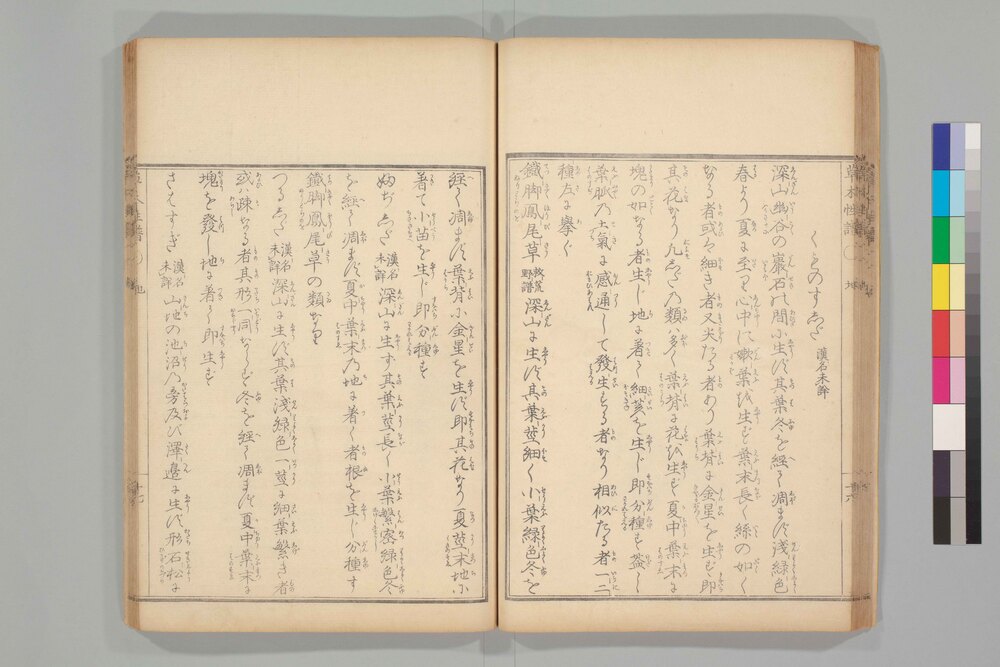 くものすしだ 漢名未詳
深山幽谷の巖石の間に生ず其葉冬を経て凋まず浅緑色
春より夏に至り心中に嫩葉を生ず葉末長く絲の如く
なる者或は細き者又尖たる者あり葉背に金星を生ず即
其花なり凡しだの類ハ多く葉背に花を生ず夏中葉末に
塊の如なる者生じ地に著て細苗を生じ即分種す蓋し
葉脈の六氣に感通して發生する者なり相似たる者一二
種左に擧ぐ
鐵脚鳳尾草 救荒野譜 深山に生ず其葉莖細く小葉緑色冬を
経て凋まず葉背小金星を生ず即其花なり夏莖末地に
著て小苗を生じ即分種す
ぬりしだ 漢名未詳 深山に生ず其葉莖長く小葉繁密緑色冬
を経て凋まず夏中葉末の地に著く者根を生じ分種す
鐵脚鳳尾草の類なり
つるしだ 漢名未詳 深山に生ず其葉浅緑色一莖に細葉繁き者
或は疎なる者其形一同ならず冬を経て凋まず夏中葉末に
塊を發し地に著て即生ず
さはすぎ 漢名未詳 山地の池沼の旁及び澤邊に生ず形石松に
草木性譜
地